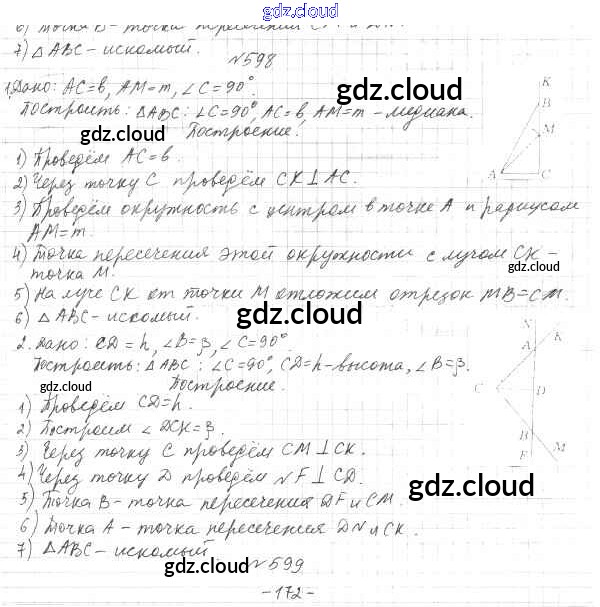 gdz.cloud
7) △ABC – искомый.
№598
1. Дано: AC=b, AM=m, ∠C=90°.
Построить: △ABC: ∠C=90°, AC=b, AM=m – медиана.
gdz.cloud
gdz.cloud
Построение:
1) Проведём AC=b.
2) Через точку C проведём CK⊥AC.
3) Проведём окружность с центром в точке A и радиусом
AM=m.
4) Точка пересечения этой окружности с лучом CK –
точка M.
gdz.cloud
5) На луче CK от точки M отложим отрезок MB=CM.
6) △ABC – искомый.
gdz.cloud
2. Дано: CD=h, ∠B=β, ∠C=90°
Построить: △ABC: ∠C=90°, CD=h – высота, ∠B=β.
gdz.cloud
Построение.
1) Проведём CD=h.
2) Построим ∠DCK=β.
3) Через точку C проведём CM⊥CK.
4) Через точку D проведём NF⊥CD.
gdz.cloud
5) Точка B – точка пересечения DF и CM.
6) Точка A – точка пересечения DN и CK.
7) △ABC – искомый
gdz.cloud
№599
–172–
K
B
M
A
C
N
K
A
C
D
B
F
M